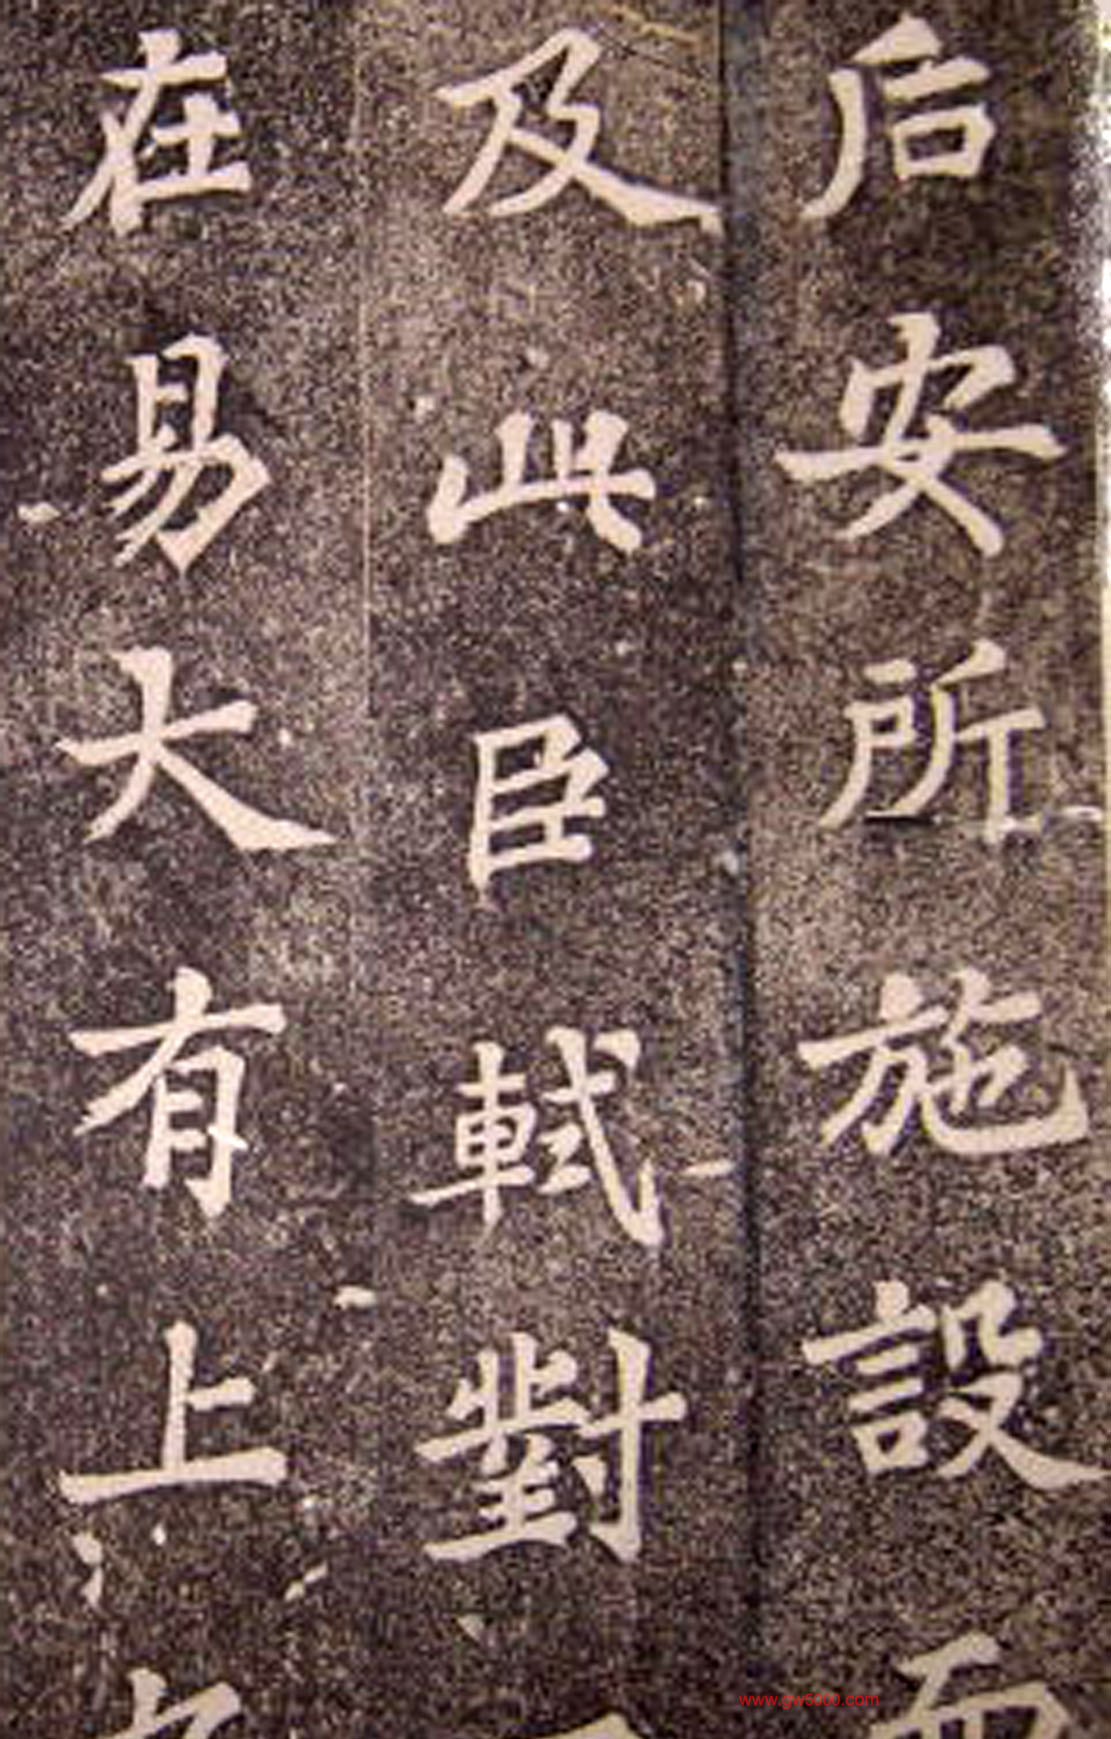 后安所施設而
及此臣軾對
在易大有上
www.gw5000.com